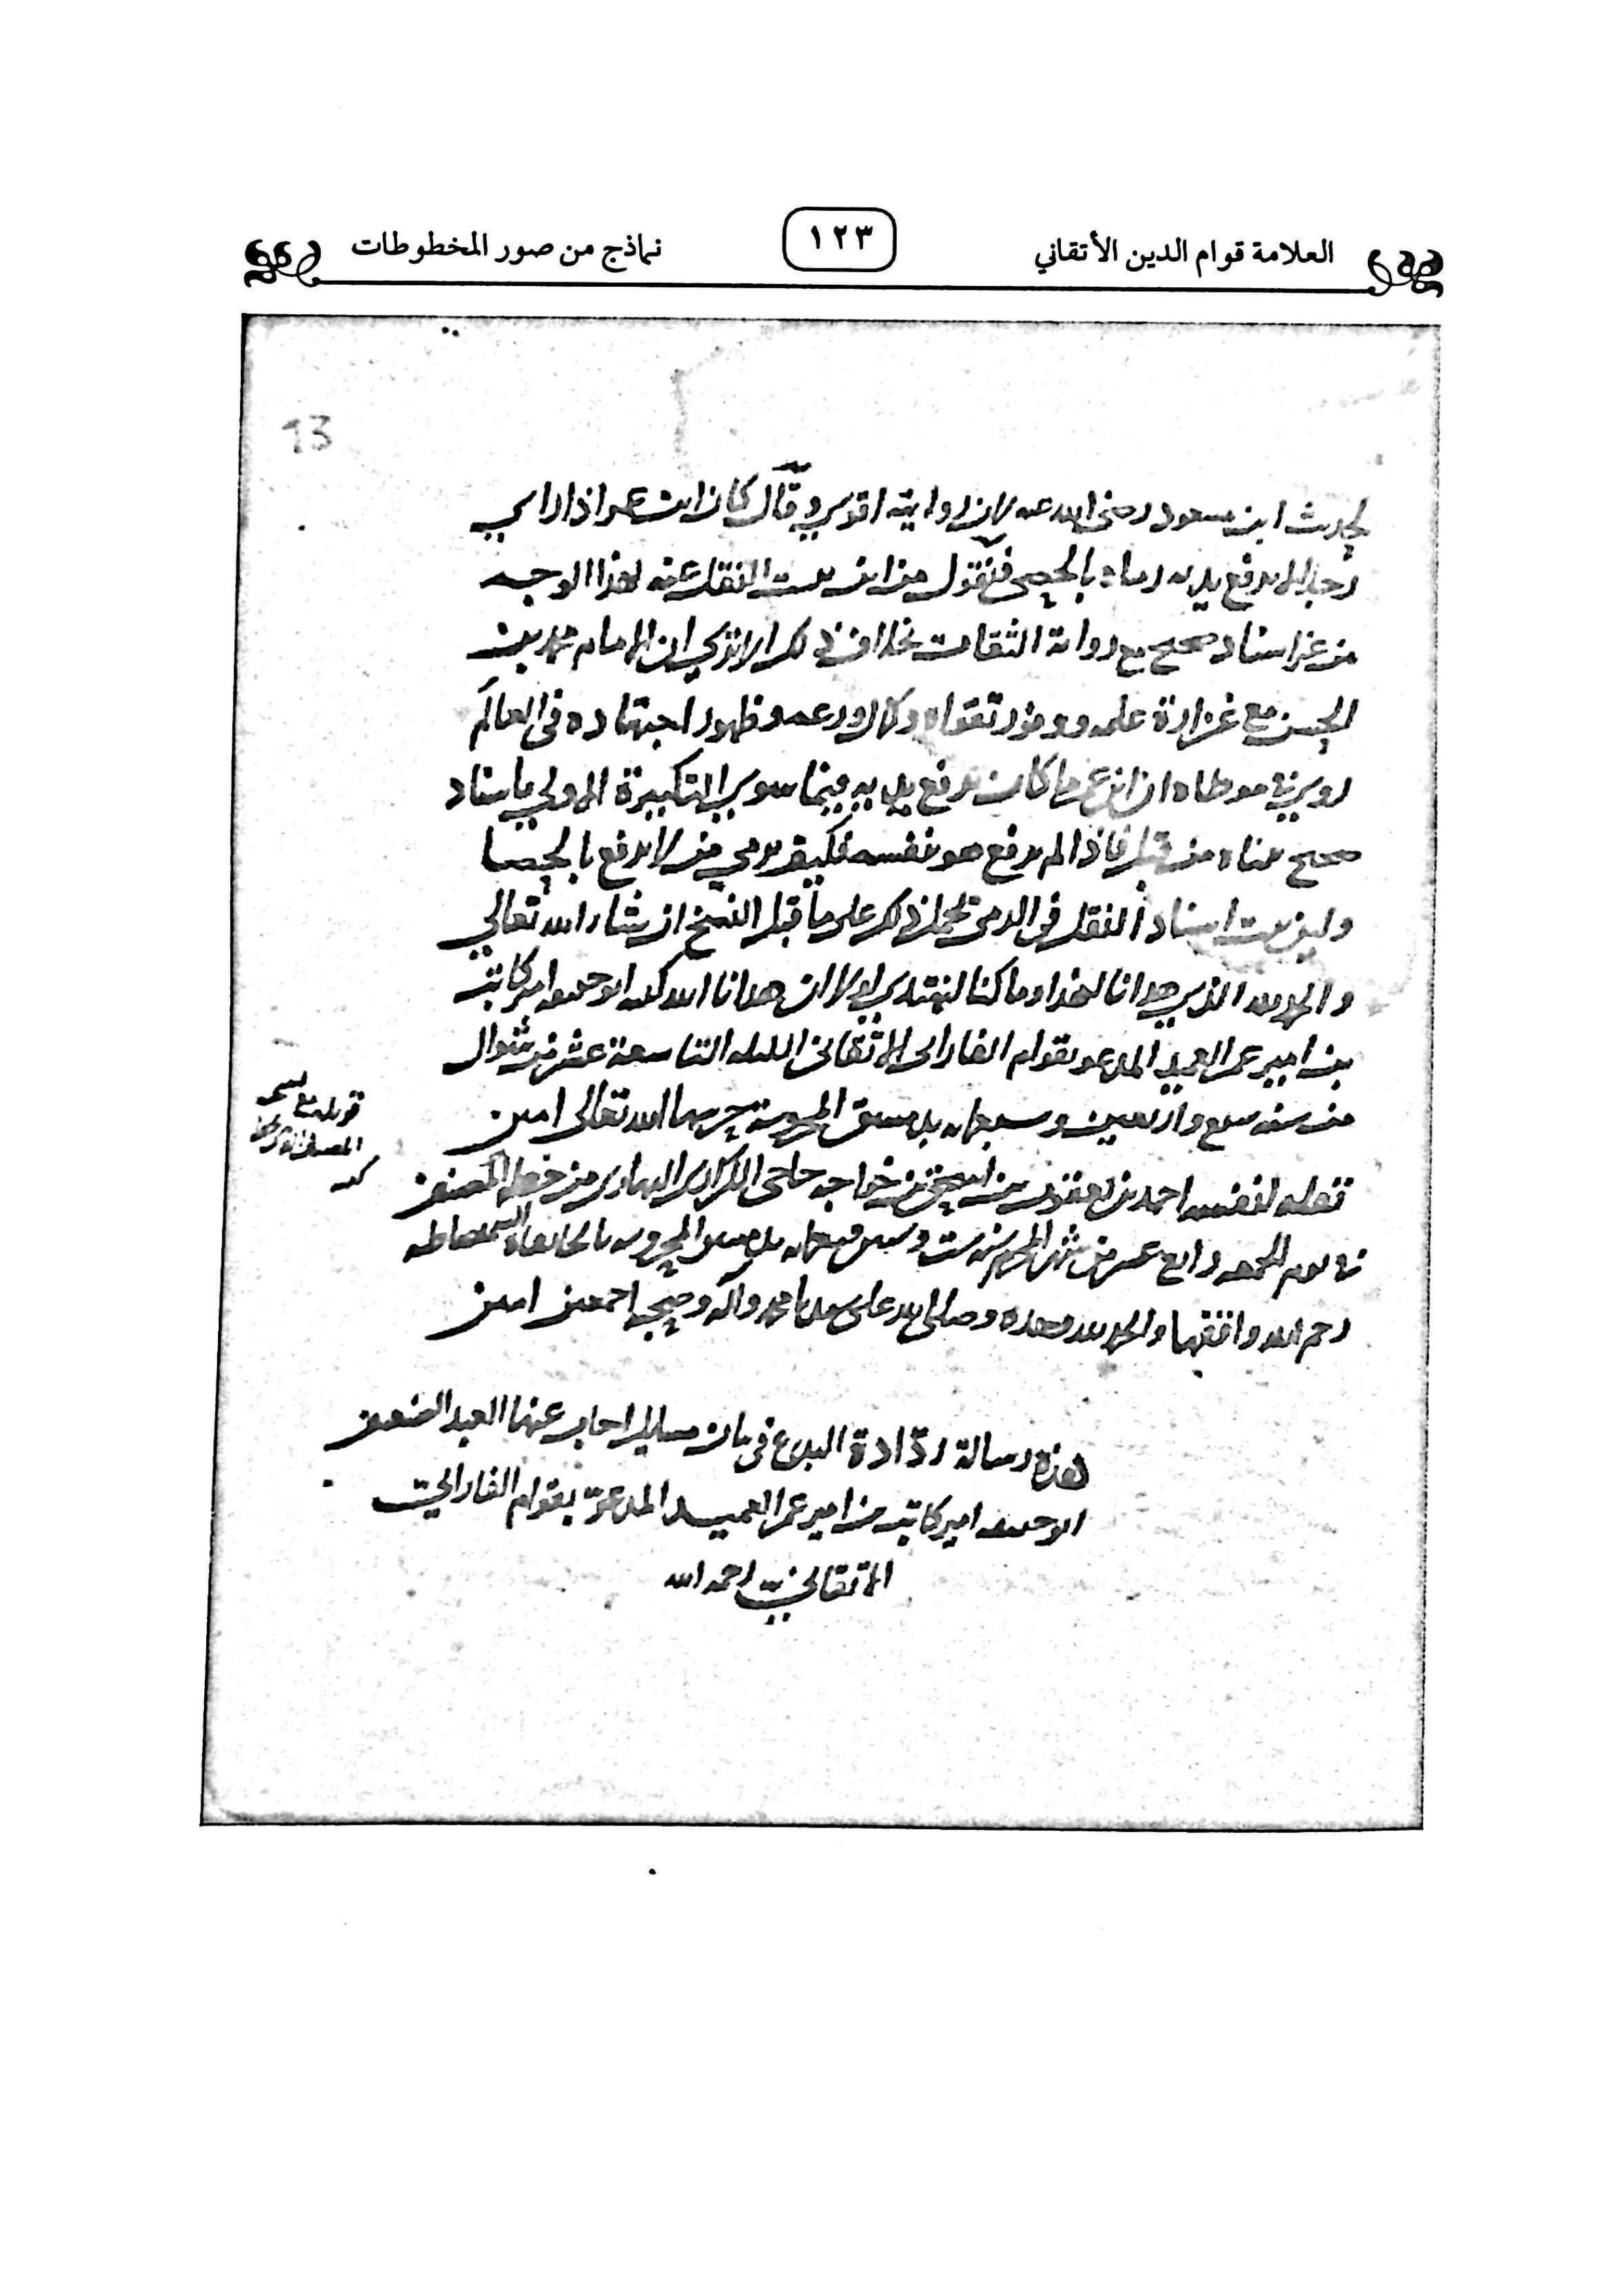 العلامة قوام الدين الأتقاني
١٢٣
نماذج من صور المخطوطات
13
لحديث ابن مسعود رضى الله عنه لان روايته اقوى وقال كان ابن عمر اذا راى
رجلا لا يرفع يديه رماه بالحصى فنقول من اين يثبت النقل عنه لهذا الوجه
من غير اسناد صحيح مع رواية الثقات بخلاف ذلك الا ترى ان الامام محمد بن
الحسن مع غزارة علمه ووفور تقواه وكمال ورعه وظهور اجتهاده فى العالم
روى فى موطاه ان ابن عمر ما كان يرفع يديه فيما سوى التكبيرة الاولى باسناد
صحيح بيناه من قبل فاذا لم يرفع هو بنفسه فكيف يرمى من لا يرفع بالحصا
ولئن ثبت اسناد النقل فى الرمى يحمل ذلك على ما قبل النسخ ان شاء الله تعالى
والحمد لله الذى هدانا لهذا وما كنا لنهتدى لولا ان هدانا الله كتبه ابو حنيفه امير كاتب
بن امير عمر العميد المدعو بقوام الفارابى الاتقانى الليله التاسعة عشر من شوال
من سنه سبع واربعين وسبعمايه بدمشق المحروسة حرسها الله تعالى امين
نقله لنفسه احمد بن يعقوب بن اسحق بن خواجه حاجى من خط المصنف
فى يوم الجمعه رابع عشر من شهر المحرم سنه ست وسبعمايه بدمشق المحروسه بالخانقاه السميساطيه
رحم الله واقفها والحمد لله وحده وصلى الله على سيدنا محمد وآله وصحبه اجمعين امين
قوبلت مع نسخه
المصنف
هذه رسالة ردّادة البدع فى بيان مسايل اجاب عنها العبد الضعيف
ابو حنيفه امير كاتب بن امير عمر العميد المدعوّ بقوام الفارابى
الاتقانى رحمه الله